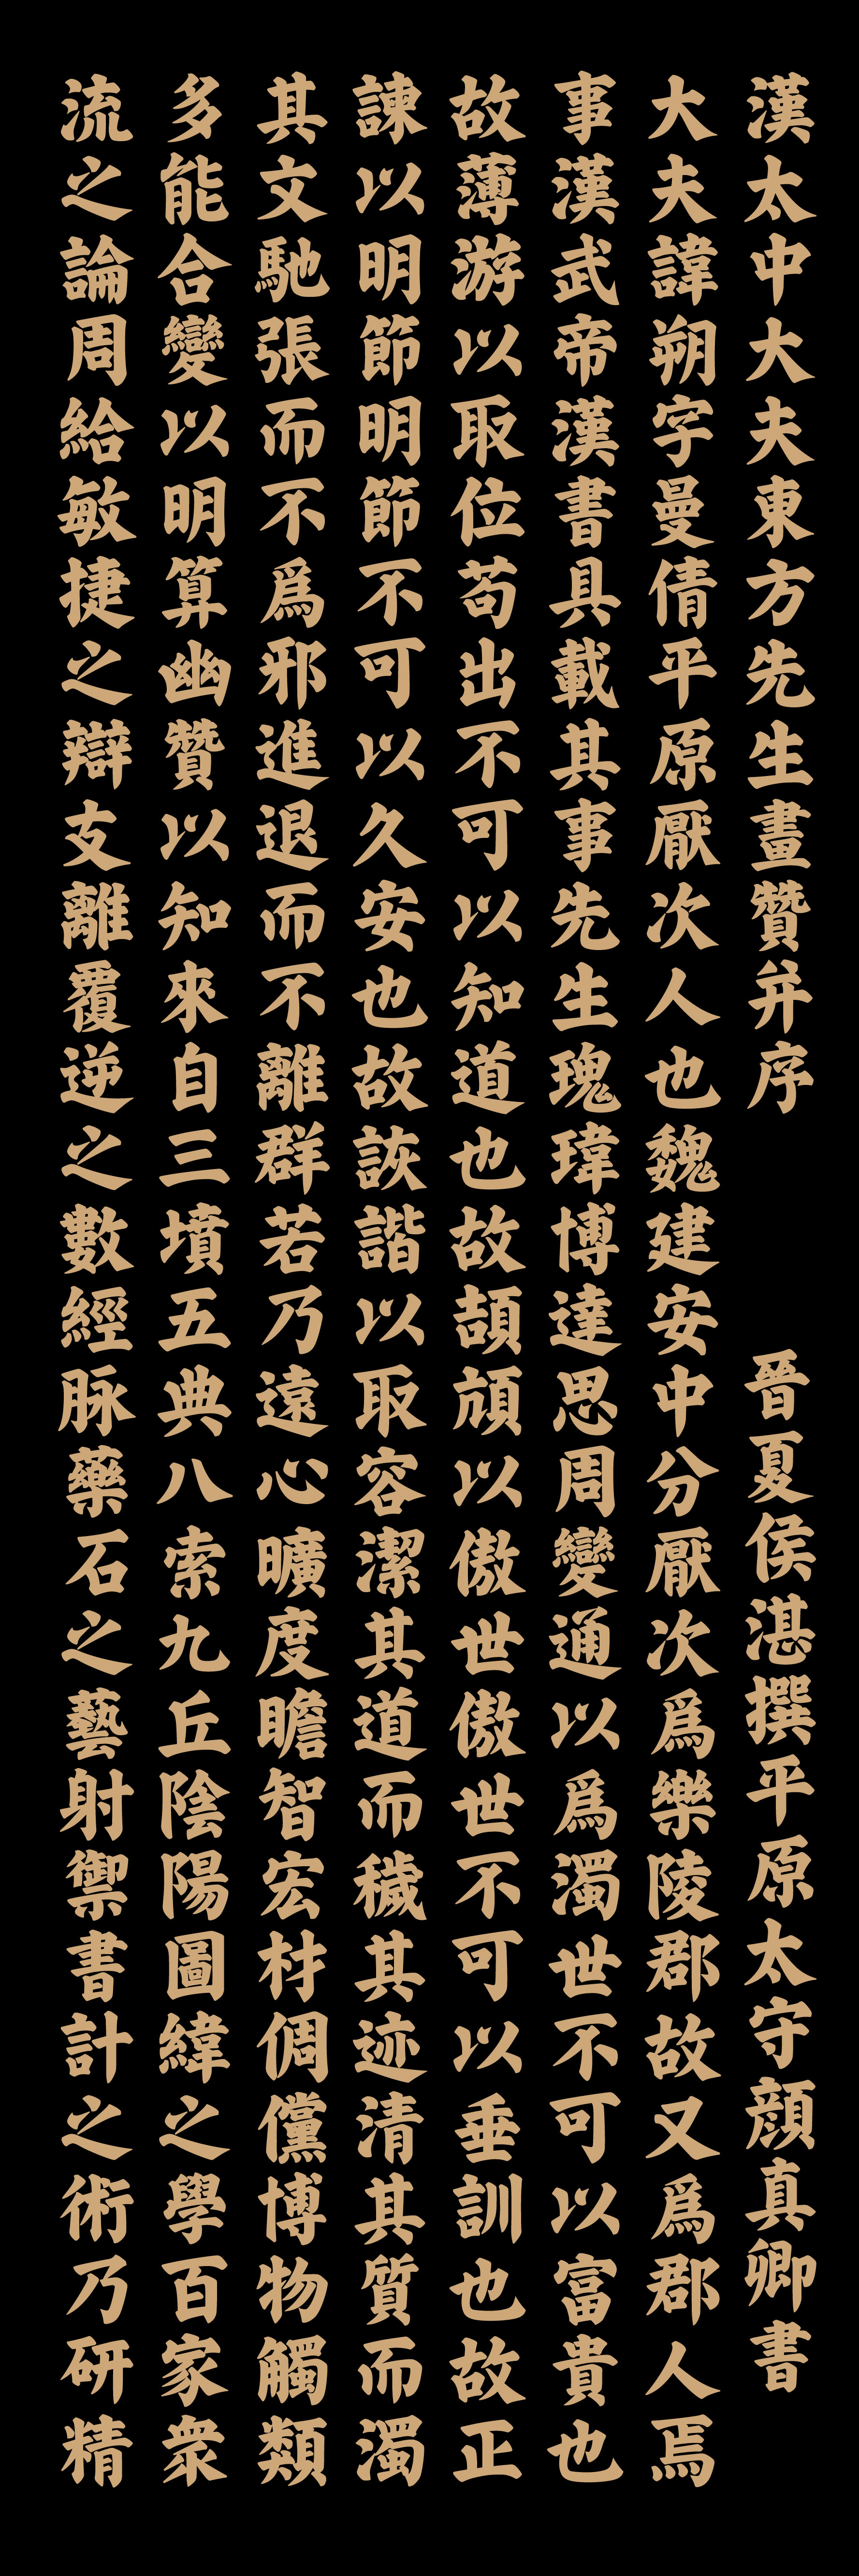 漢太中大夫東方先生畫贊并序 晉夏侯湛撰平原太守顔真卿書
大夫諱朔字曼倩平原厭次人也魏建安中分厭次爲樂陵郡故又爲郡人焉
事漢武帝漢書具載其事先生瑰瑋博達思周變通以爲濁世不可以富貴也
故薄游以取位苟出不可以知道也故頡頏以傲世傲世不可以垂訓也故正
諫以明節明節不可以久安也故詼諧以取容潔其道而穢其迹清其質而濁
其文馳張而不爲邪進退而不離群若乃遠心曠度瞻智宏材倜儻博物觸類
多能合變以明算幽贊以知來自三墳五典八索九丘陰陽圖緯之學百家衆
流之論周給敏捷之辯支離覆逆之數經脉藥石之藝射禦書計之術乃研精